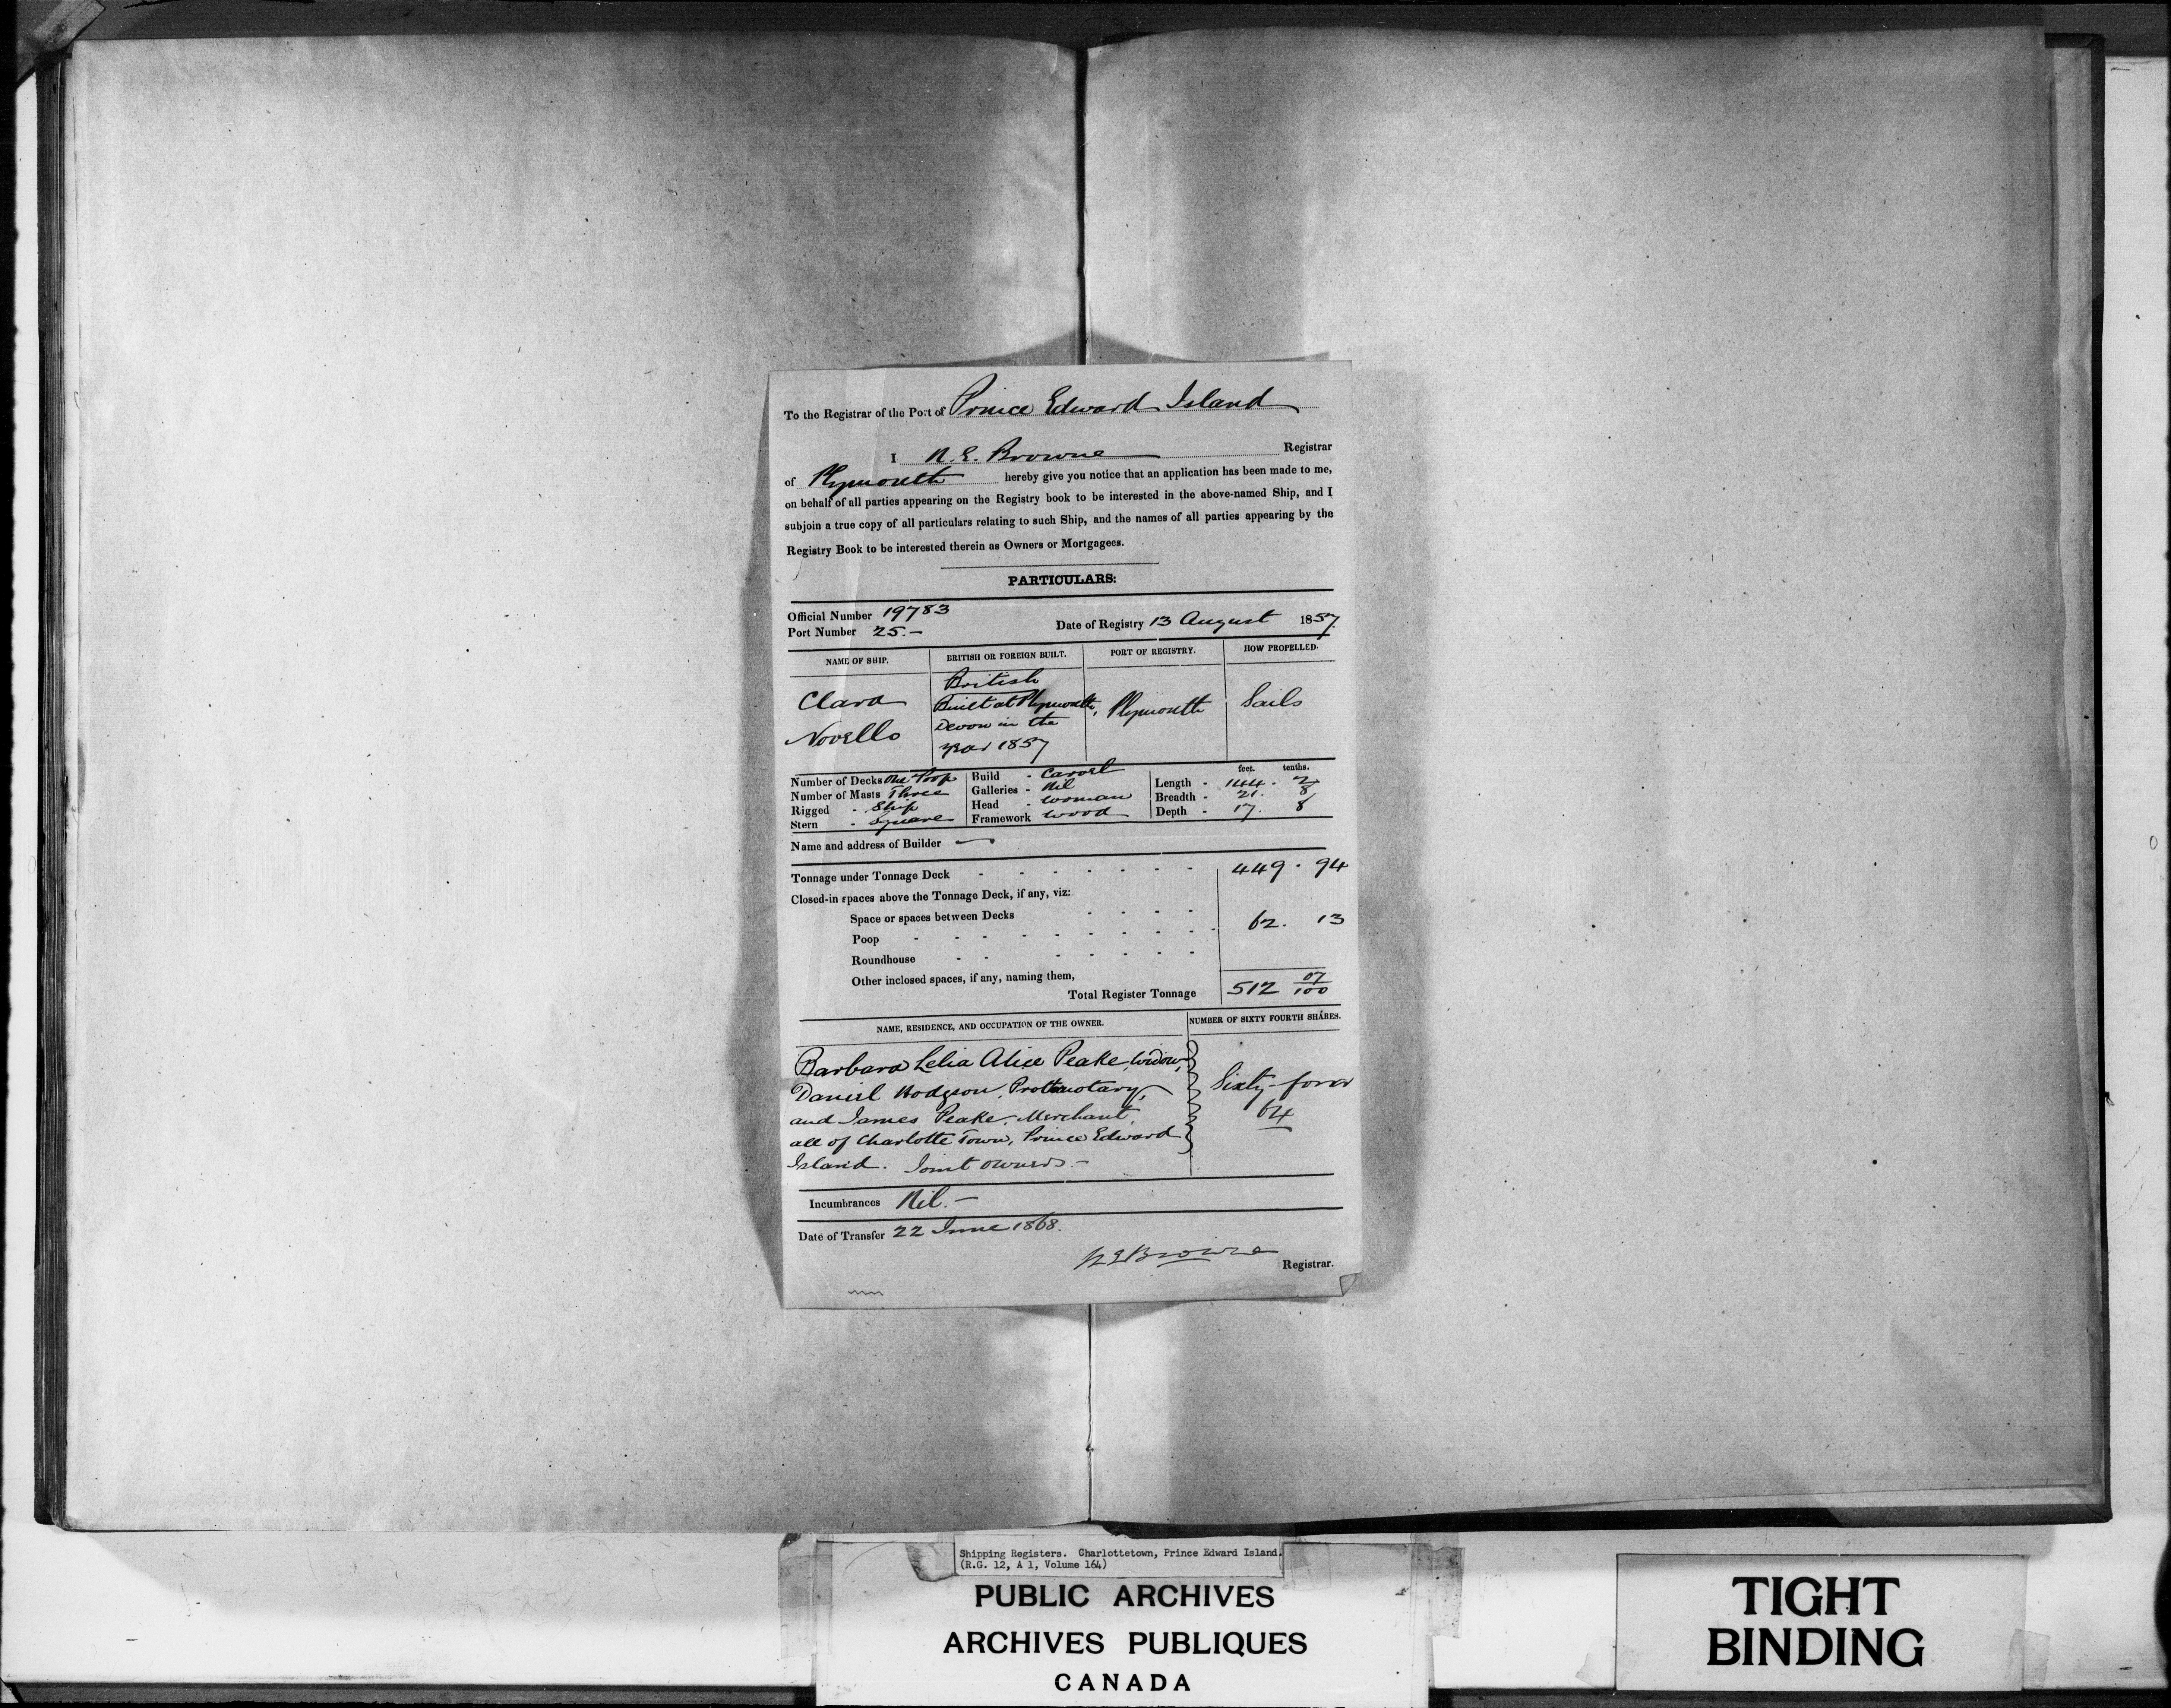 To the Registrar of the Port of Prince Edward Island
I N. E. Browne Registrar
of Plymouth hereby give you notice that an application has been made to me,
on behalf of all parties appearing on the Registry book to be interested in the above-named Ship, and I
subjoin a true copy of all particulars relating to such Ship, and the names of all parties appearing by the
Registry Book to be interested therein as Owners or Mortgagees.
PARTICULARS:
Official Number 19783
Port Number 25.- Date of Registry 13 August 1857.
NAME OF SHIP. BRITISH OR FOREIGN BUILT. PORT OF REGISTRY. HOW PROPELLED.
Clara Novello
British
Built at Plymouth,
Devon in the
year 1857
Plymouth
Sails
feet. tenths.
Number of Decks One Poop Build - Carvel Length - 144. 2
Number of Masts Three Galleries - Nil Breadth - 21. 8
Rigged - Ship Head - Woman Depth - 17. 8
Stern - Square Framework Wood
Name and address of Builder —
Tonnage under Tonnage Deck - - - - - - - 449. 94
Closed-in spaces above the Tonnage Deck, if any, viz:
Space or spaces between Decks - - - - 62. 13
Poop - - - - - - - - - -
Roundhouse - - - - - - -
Other inclosed spaces, if any, naming them,
Total Register Tonnage 512 07/100
NAME, RESIDENCE, AND OCCUPATION OF THE OWNER. NUMBER OF SIXTY FOURTH SHARES.
Barbara Lelia Alice Peake, Widow,
Daniel Hodgson, Prothonotary, Sixty-four
and James Peake, Merchant, 64
all of Charlotte Town, Prince Edward
Island. Joint owners.-
Incumbrances Nil.-
Date of Transfer 22 June 1868.
N E Browne
Registrar.
Shipping Registers. Charlottetown, Prince Edward Island.
(R.G. 12, A 1, Volume 164)
PUBLIC ARCHIVES
ARCHIVES PUBLIQUES
CANADA
TIGHT
BINDING